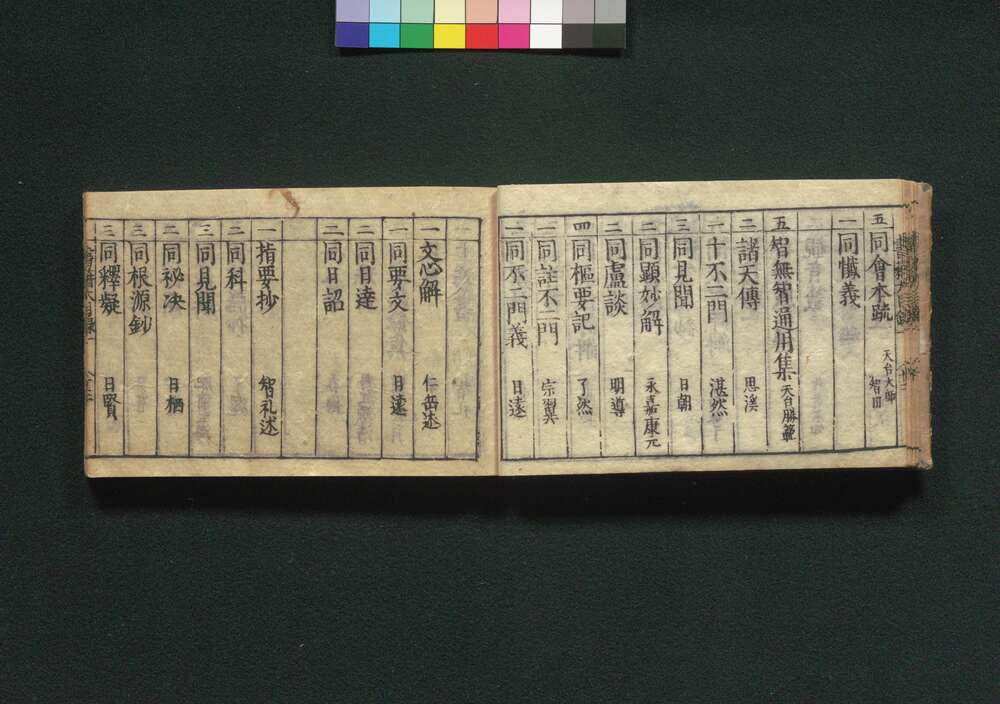 五 同會本疏 天台大師 智
一 同懺義
五 智無智通用集 天台勝範
二 諸天傳 思溪
一 十不二門 湛然
三 同見聞 日朝
二 同顕妙解 永嘉康元
二 同盧談 明導
四 同樞要記 了然
二 同註不二門 宗翼
一 同不二門義 日遠
一 文心解 仁岳述
一 同要文 日遠
二 同日達
二 同日詔
一 指要抄 智礼述
二 同科
三 同見聞
二 同祕决 日栖
三 同根源鈔
三 同釋疑 日賢